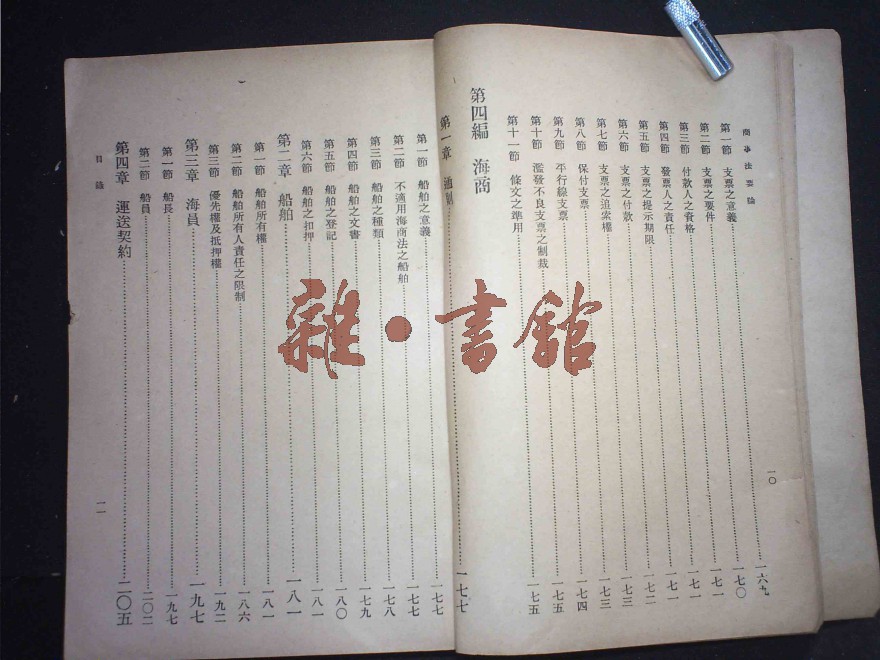 商事法要論
一〇
第一節 支票之意義……一六九
第二節 支票之要件……一七〇
第三節 付款人之資格……一七一
第四節 發票人之責任……一七一
第五節 支票之提示期限……一七一
第六節 支票之付款……一七二
第七節 支票之追索權……一七三
第八節 保付支票……一七三
第九節 平行線支票……一七四
第十節 濫發不良支票之制裁……一七五
第十一節 條文之準用……一七五
第四編 海商
第一章 通則……一七七
第一節 船舶之意義……一七七
第二節 不適用海商法之船舶……一七七
第三節 船舶之種類……一七八
第四節 船舶之文書……一七九
第五節 船舶之登記……一八〇
第六節 船舶之扣押……一八一
第二章 船舶……一八一
第一節 船舶所有權……一八一
第二節 船舶所有人責任之限制……一八六
第三節 優先權及抵押權……一九二
第三章 海員……一九七
第一節 船長……一九七
第二節 船員……二〇二
第四章 運送契約……二〇五
目錄
一一
雜·書館